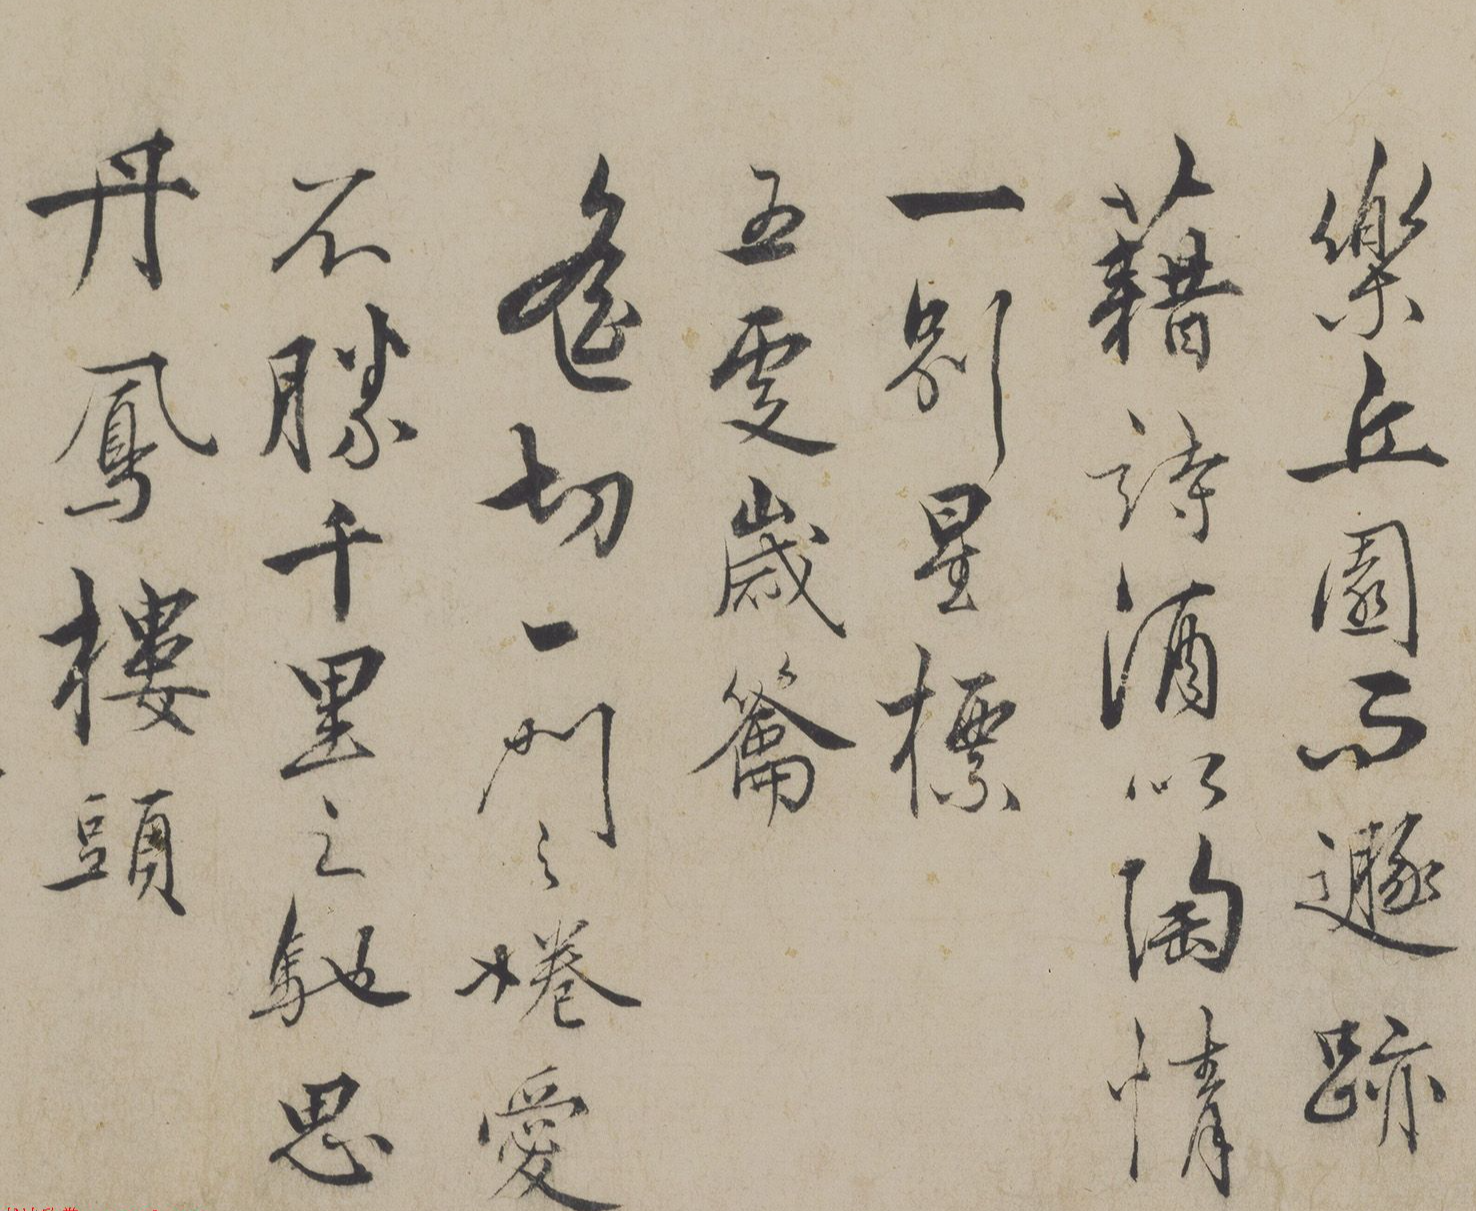 樂丘園而遯跡
藉詩酒以陶情
一別星標
五更歲籥
遙切一門之惓愛
不勝千里之馳思
丹鳳樓頭